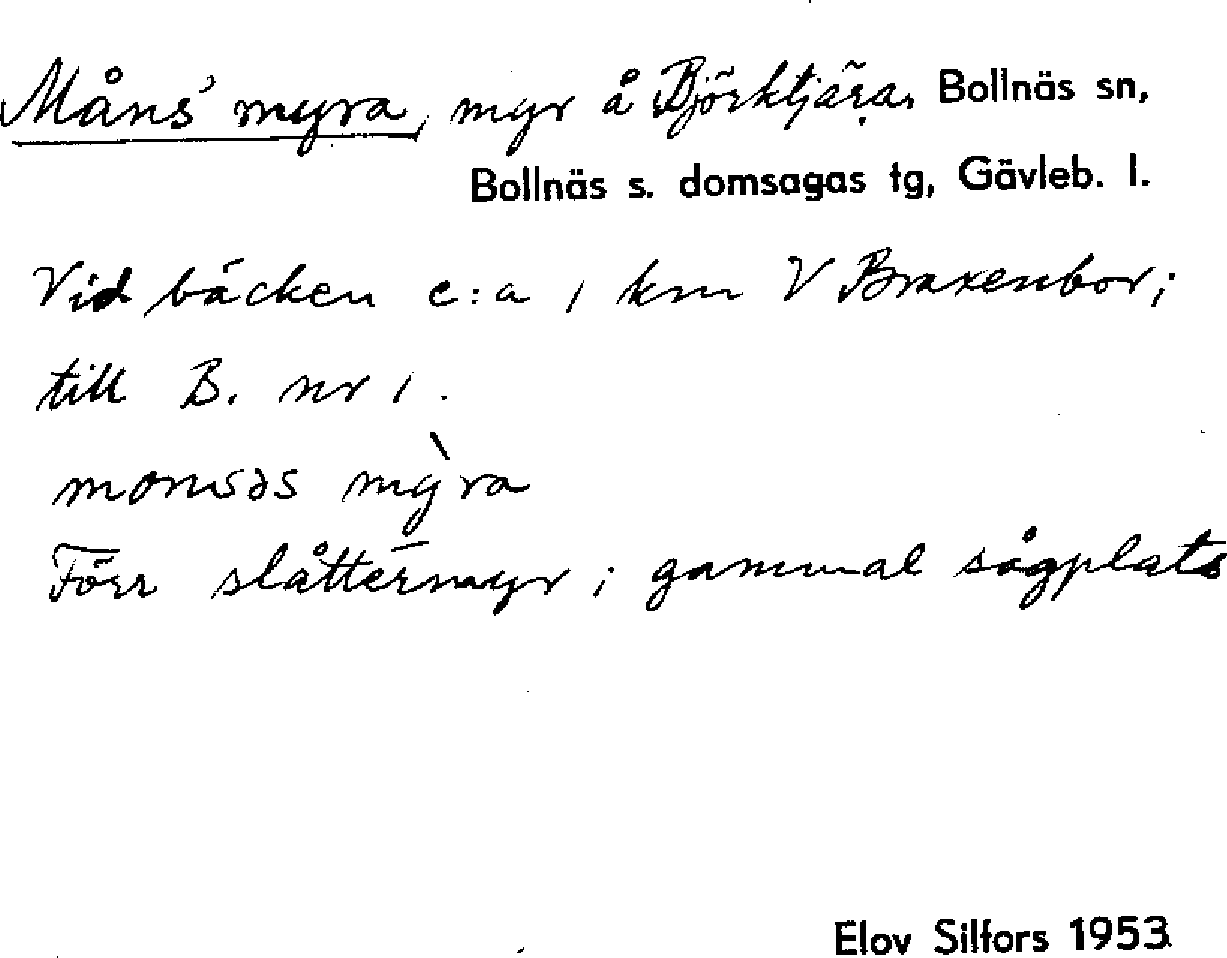 Måns' myra, myr å Björktjära, Bollnäs sn,
Bollnäs s. domsagas tg, Gävleb. l.
Vid bäcken c:a 1 km V Braxenbor;
till B. nr 1.
monsəs my̆̀ra
Förr slåttermyr; gammal sågplats
Elov Silfors 1953